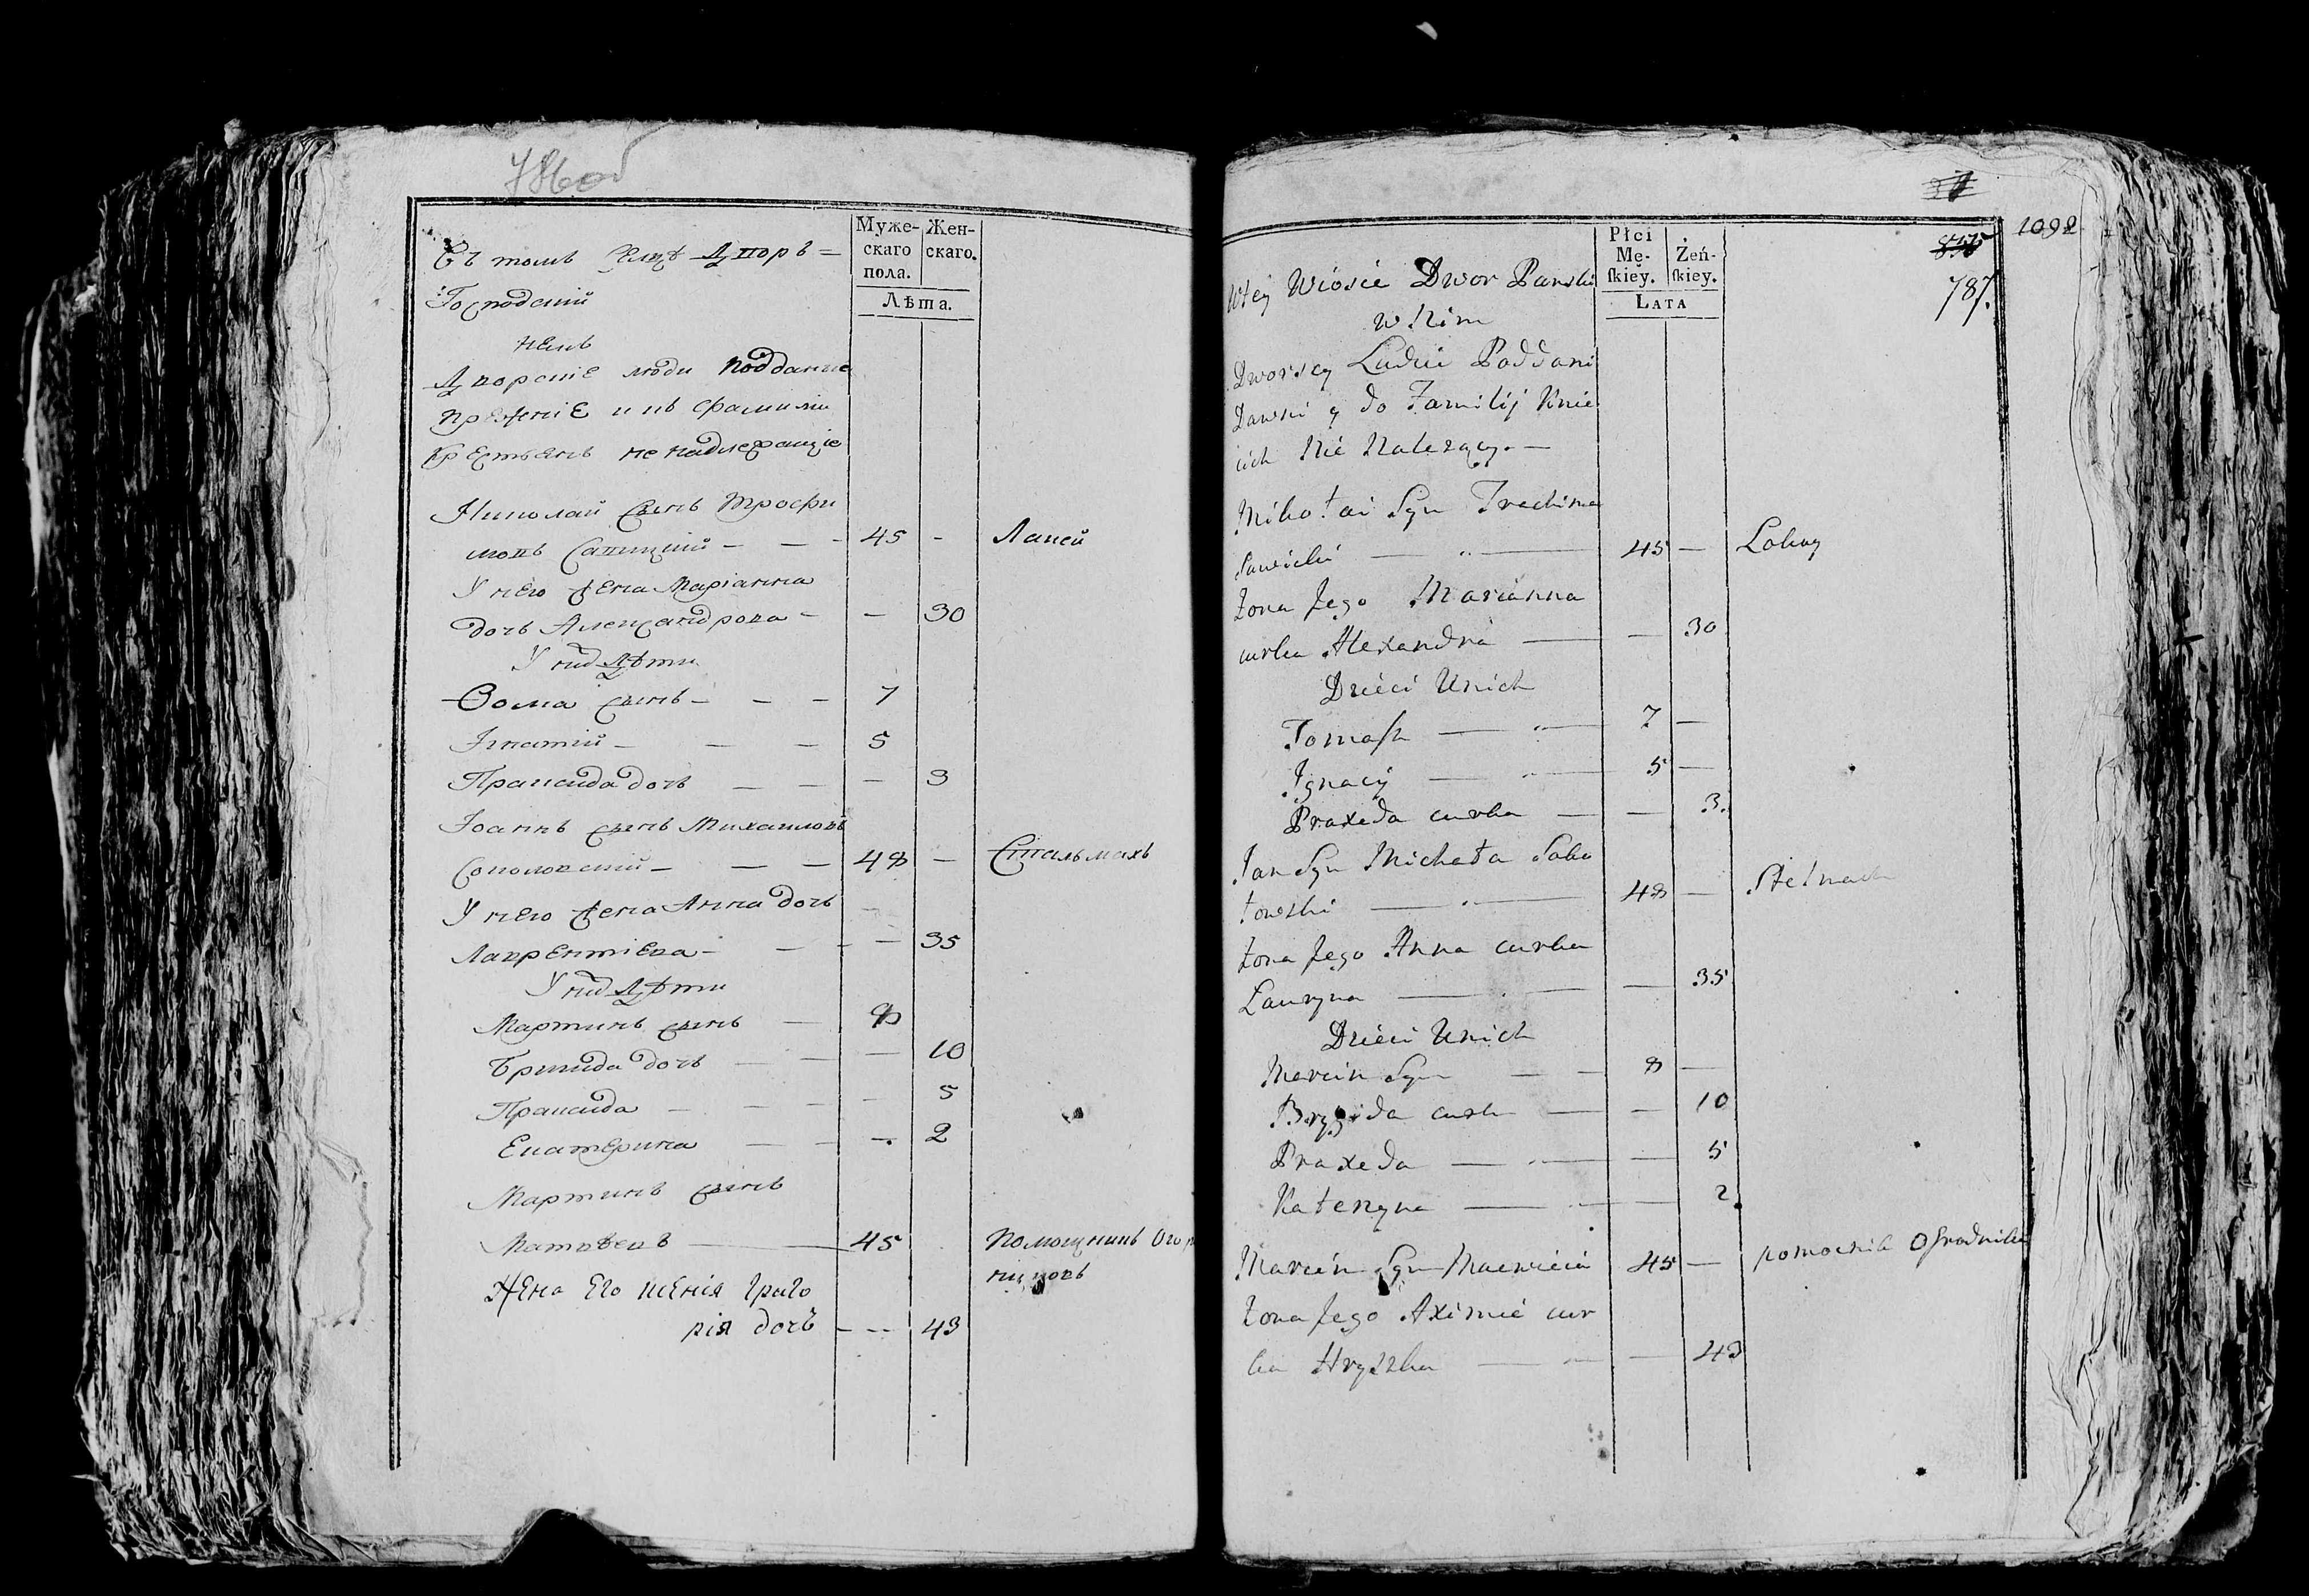 786об
Муже-
скаго
пола.
Жен-
скаго.
Лѣта.
Въ томъ Селѣ Дворъ =
Господскій
немъ
Дворскіе люди подданые
прежніе и къ фамиліи
Крестьянъ не надлежащіе
Николай сынъ Трофи
мовъ Савицкій — — — 45 - Лакей
У него жена Маріанна
дочь Александрова — — 30
У них дѣти
Ѳома сынъ — — — 7
Игнатій — — — 5
Праксида дочь — — — 3
Іоаннъ сынъ Михаиловъ
Соколовскій — — — 48 — Стальмахъ
У него жена Анна дочь
Лаврентіева — — — — 35
У них дѣти
Мартинъ сынъ — 8
Бригида дочь — — — 10
Праксида — — — — 5
Екатерина — — — 2
Мартинъ сынъ
Матвеевъ — 45 Помощникъ Огор
никовъ
Жена Его ксенія Григо
рія дочь — -- 43
1092
835
787.
Płci
Mę-
ſkiey.
Żeń-
ſkiey.
Lata
Wtey Wiosie Dwor Panski
w Nim
Dworscy Ludzie Poddani
Dawni y do Familij Knie
cich Nié Nalezący. —
Mikołai Syn Trochima
Sawicki — " — 45 — Lokay
Zona Jego Marianna
curka Alexandra — — 30
Dzieci Unich
Tomaſz — " — 7 —
Ignacy — " — 5 —
Praxeda curka — — 3.
Jan Syn Michała Soko
łowski — " — 48 — Stelmach
Zona Jego Anna curka
Lauryna — — — 35
Dzieci Unich
Marcin Syn — — 8 —
Brygida curk — — 10
Praxeda — — — 5
Katerzyna — — — 2
Marcin Syn Macwieia 45 — pomocnik Ogrodnika
Zona Jego Axinié cur
ka Hryszka — — — 43